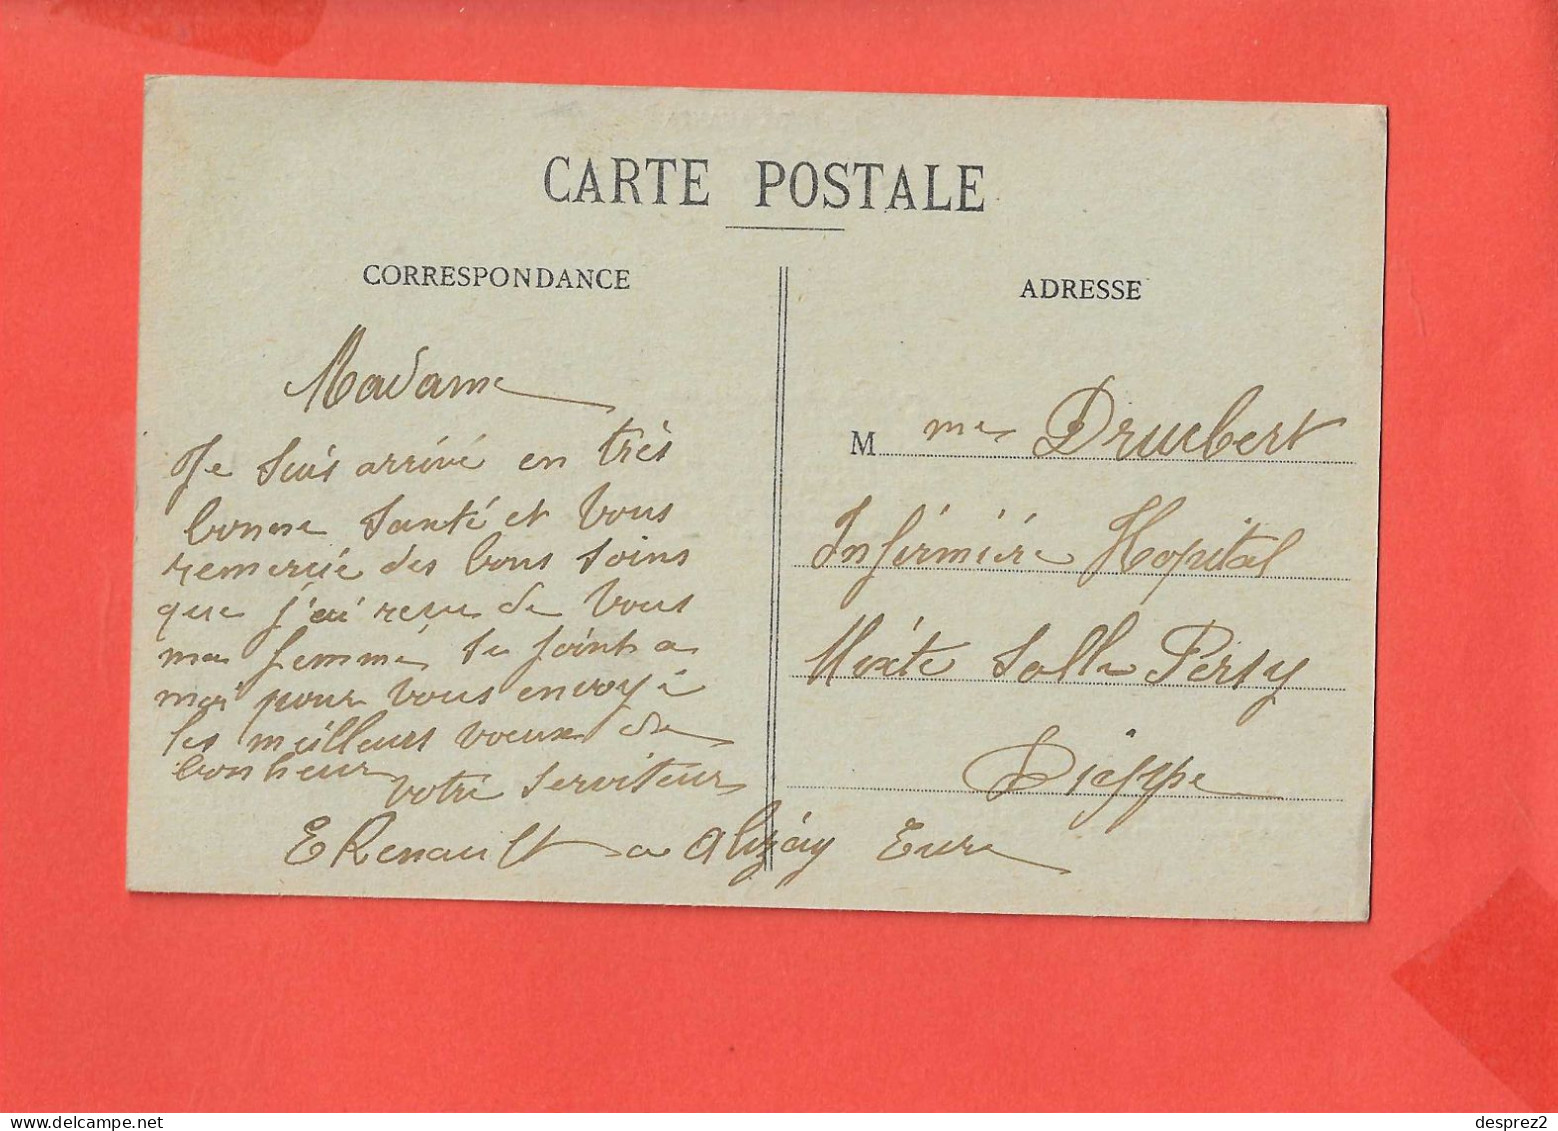 CARTE POSTALE
CORRESPONDANCE
Madame
Je suis arrivé en très
bonne santé et vous
remercie des bons soins
que j'ai reçu de vous
ma femme se joint a
moi pour vous envoyé
les meilleurs voeux de
bonheur
votre serviteur
E Renault a Alizay Eure
ADRESSE
M me Druebert
Infirmière Hopital
Mixte Salle Persy
Dieppe
desprez2